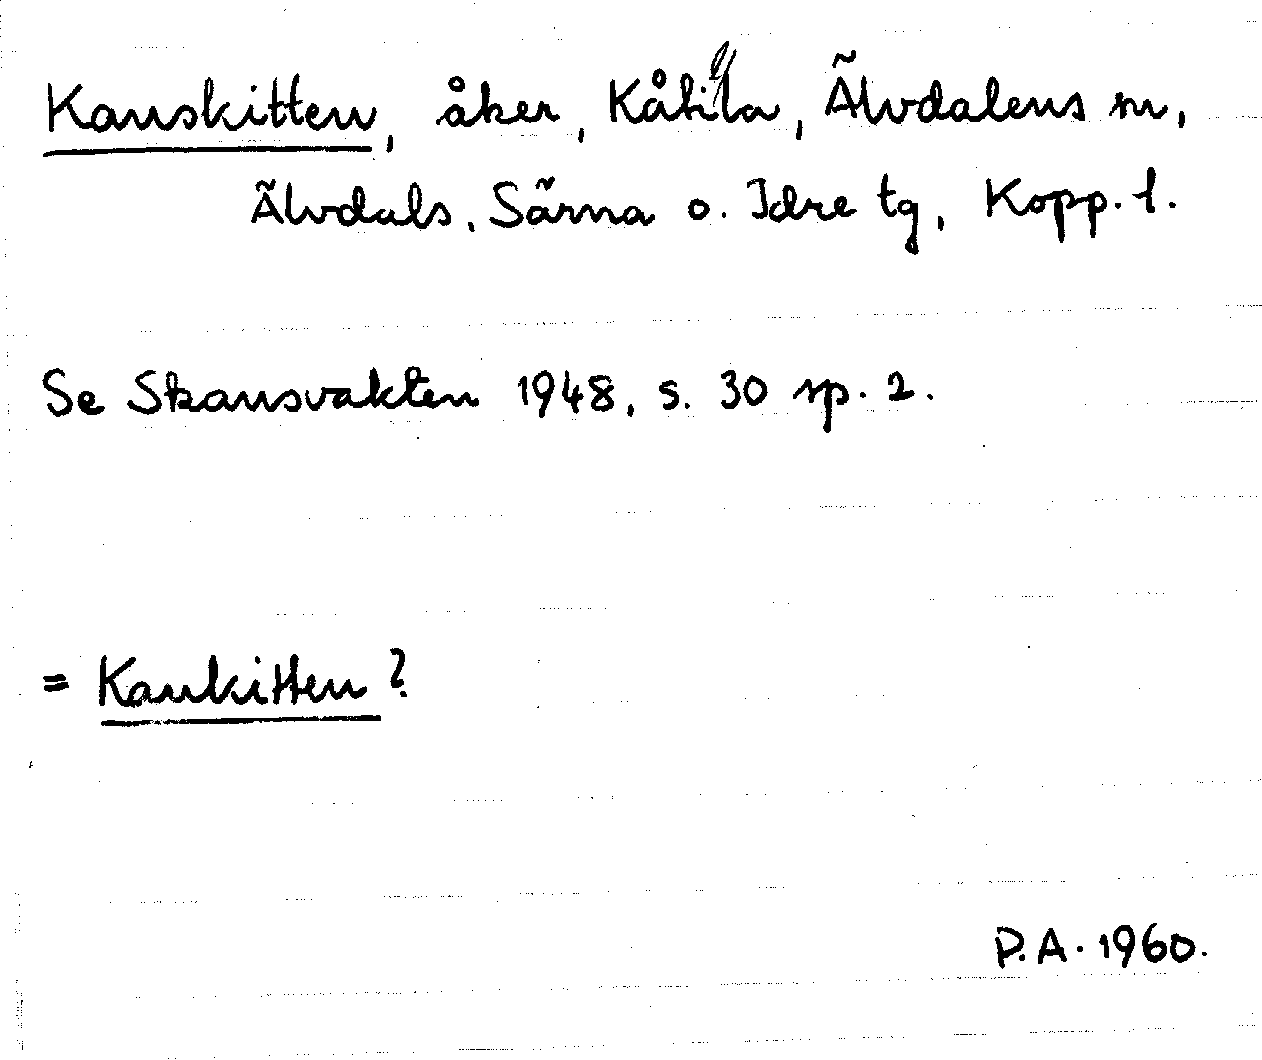 Kanskitten, åker, Kåtilla, Älvdalens sn,
Älvdals, Särna o. Idre tg, Kopp. l.
Se Skansvakten 1948, s. 30 sp. 2.
= Kankitten?
P.A. 1960.